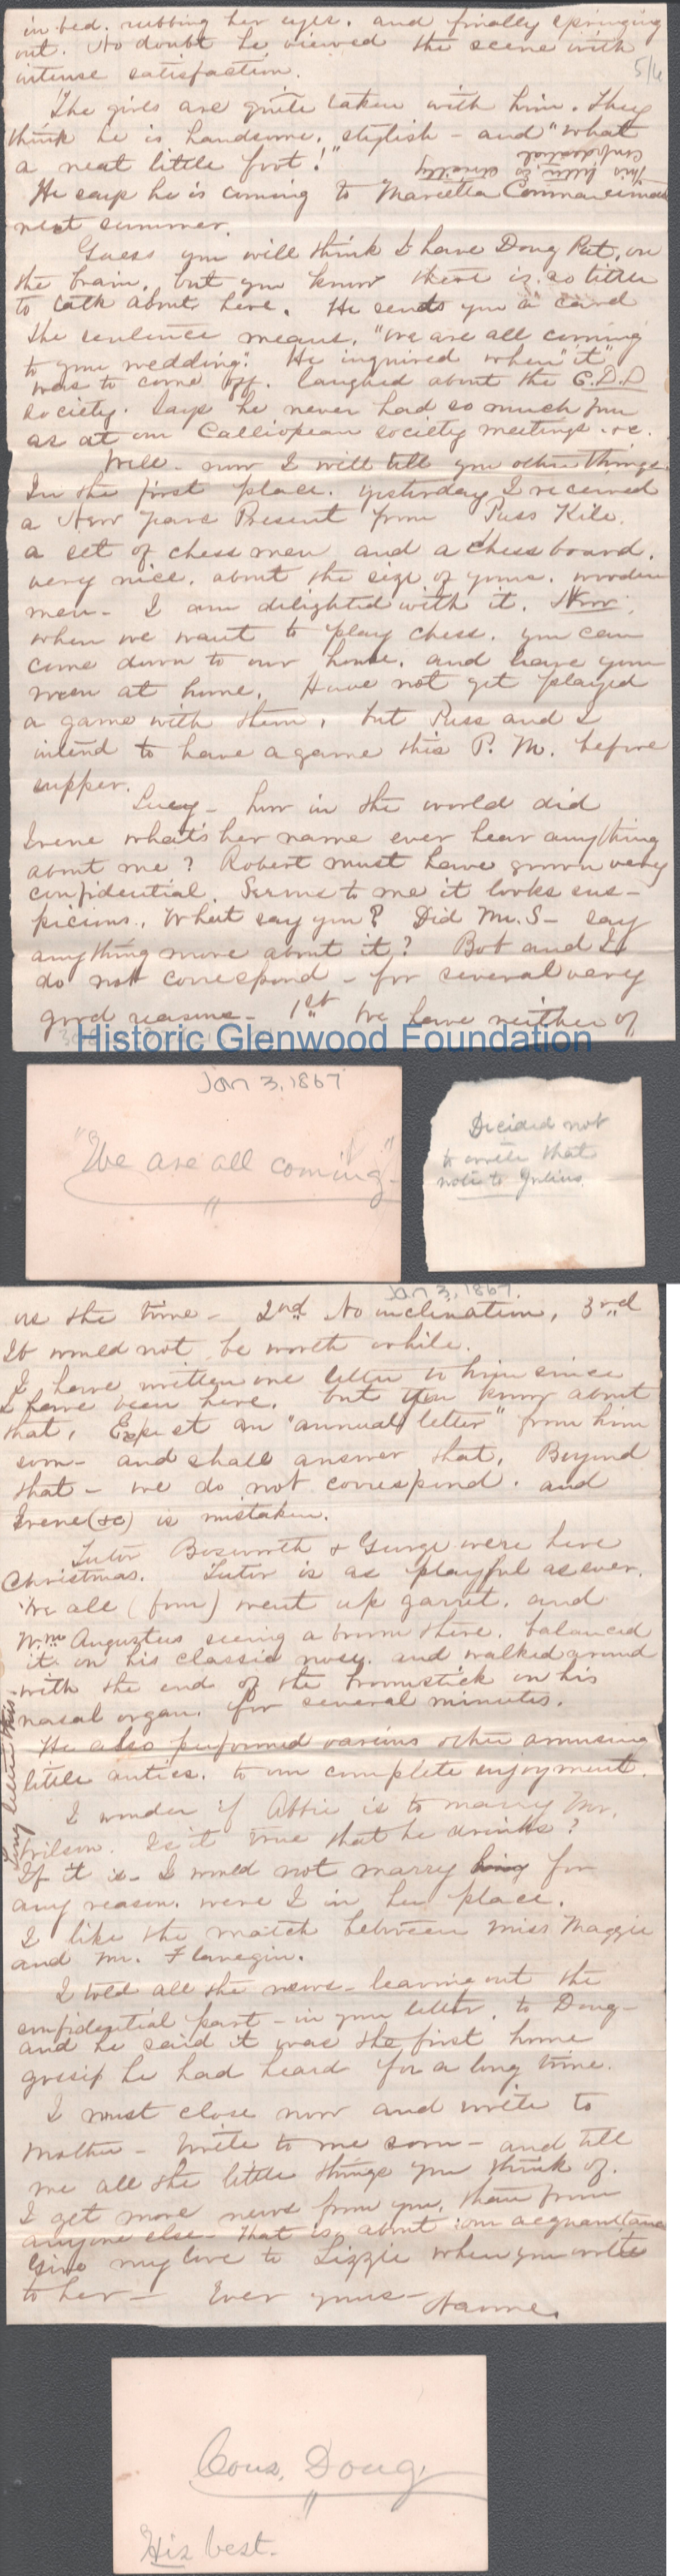 in bed. rubbing her eyes. and finally springing
out. No doubt he viewed the scene with
intense satisfaction.
5/6
The girls are quite taken with him. They
think he is handsome, stylish - and "what
a neat little foot!"
This letter is strictly
confidential
He says he is coming to Marietta Commencement
next summer.
Guess you will think I have Doug Put. on
the brain, but you know there is so little
to talk about here. He sends you a card
the sentence means, "We are all coming
to your wedding". He inquired when "it"
was to come off. laughed about the C.D.D
society. Says he never had so much fun
as at our Calliopean society meetings. &c.
Well - now I will tell you other things.
In the first place. yesterday I received
a New Years Present from Puss Kile.
a set of chess men and a chess board.
very nice. about the size of yours. wooden
men - I am delighted with it. Now.
when we want to play chess. you can
come down to our house. and leave your
men at home. Have not yet played
a game with them, but Puss and I
intend to have a game this P. M. before
supper.
Lucy - how in the world did
Irene what's her name ever hear anything
about me? Robert must have grown very
confidential. Seems to me it looks sus-
picious. What say you? Did Mr. S - say
anything more about it? Bob and I
do not correspond - for several very
good reasons - 1st We have neither of
Historic Glenwood Foundation
Jan 3, 1867
"We are all coming"
Decided not
to write that
note to Julius.
Jan 3, 1867.
us the time - 2nd No inclination, 3rd
It would not be worth while.
I have written one letter to him since
I have been here. but you know about
that, Expect an "annual letter" from him
soon - and shall answer that, Beyond
that - we do not correspond. and
Irene (&c) is mistaken.
Tutor Bosworth & George were here
Christmas. Tutor is as playful as ever.
We all (four) went up garret. and
Wm Augustus seeing a broom there. balanced
it on his classic nose. and walked around
with the end of the broomstick on his
nasal organ. for several minutes.
He also performed various other amusing
little antics. to our complete enjoyment.
Long letter this.
I wonder if Abbie is to marry Mr.
Wilson. Is it true that he drinks?
If it is - I would not marry him for
any reason. were I in her place.
I like the match between Miss Maggie
and Mr. Flanegin.
I told all the news - leaving out the
confidential part - in your letter. to Doug -
and he said it was the first home
gossip he had heard for a long time.
I must close now and write to
Mother - Write to me soon - and tell
me all the little things you think of.
I get more news from you, than from
anyone else - that is, about our acquaintance
Give my love to Lizzie when you write
to her - Ever yours -
Nannie.
Cous. Doug
His best.